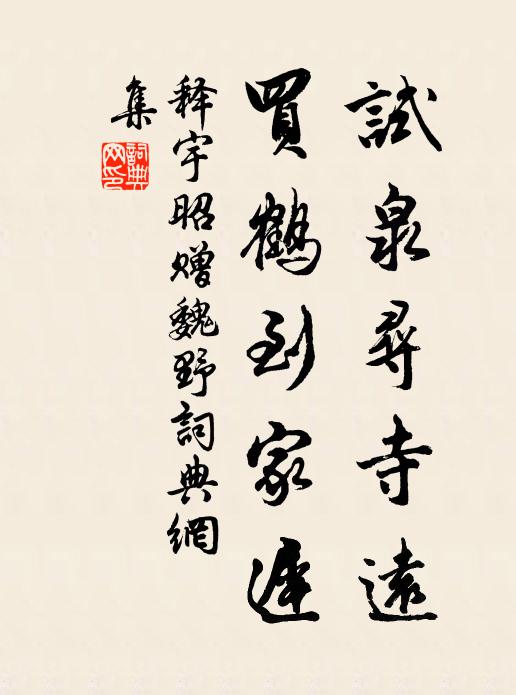 試泉尋寺遠
買鶴到家遲
释宇昭赠魏野詞典網
集
詞典網印